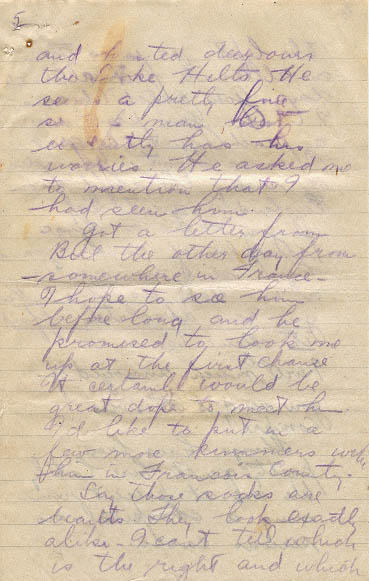 5
and
the Hilts. He
a pretty fine
man but
has his
worries. He asked me
to mention that I
had seen him.
Got a letter from
Bill the other day from
somewhere in France.
I hope to see him
before long and he
promised to look me
up at the first chance
It certainly would be
great dope to meet him
I'd like to put in a
few more summers with
him in County.
Say those socks are
beauts. They look exactly
alike. I cant tell which
is the right and which